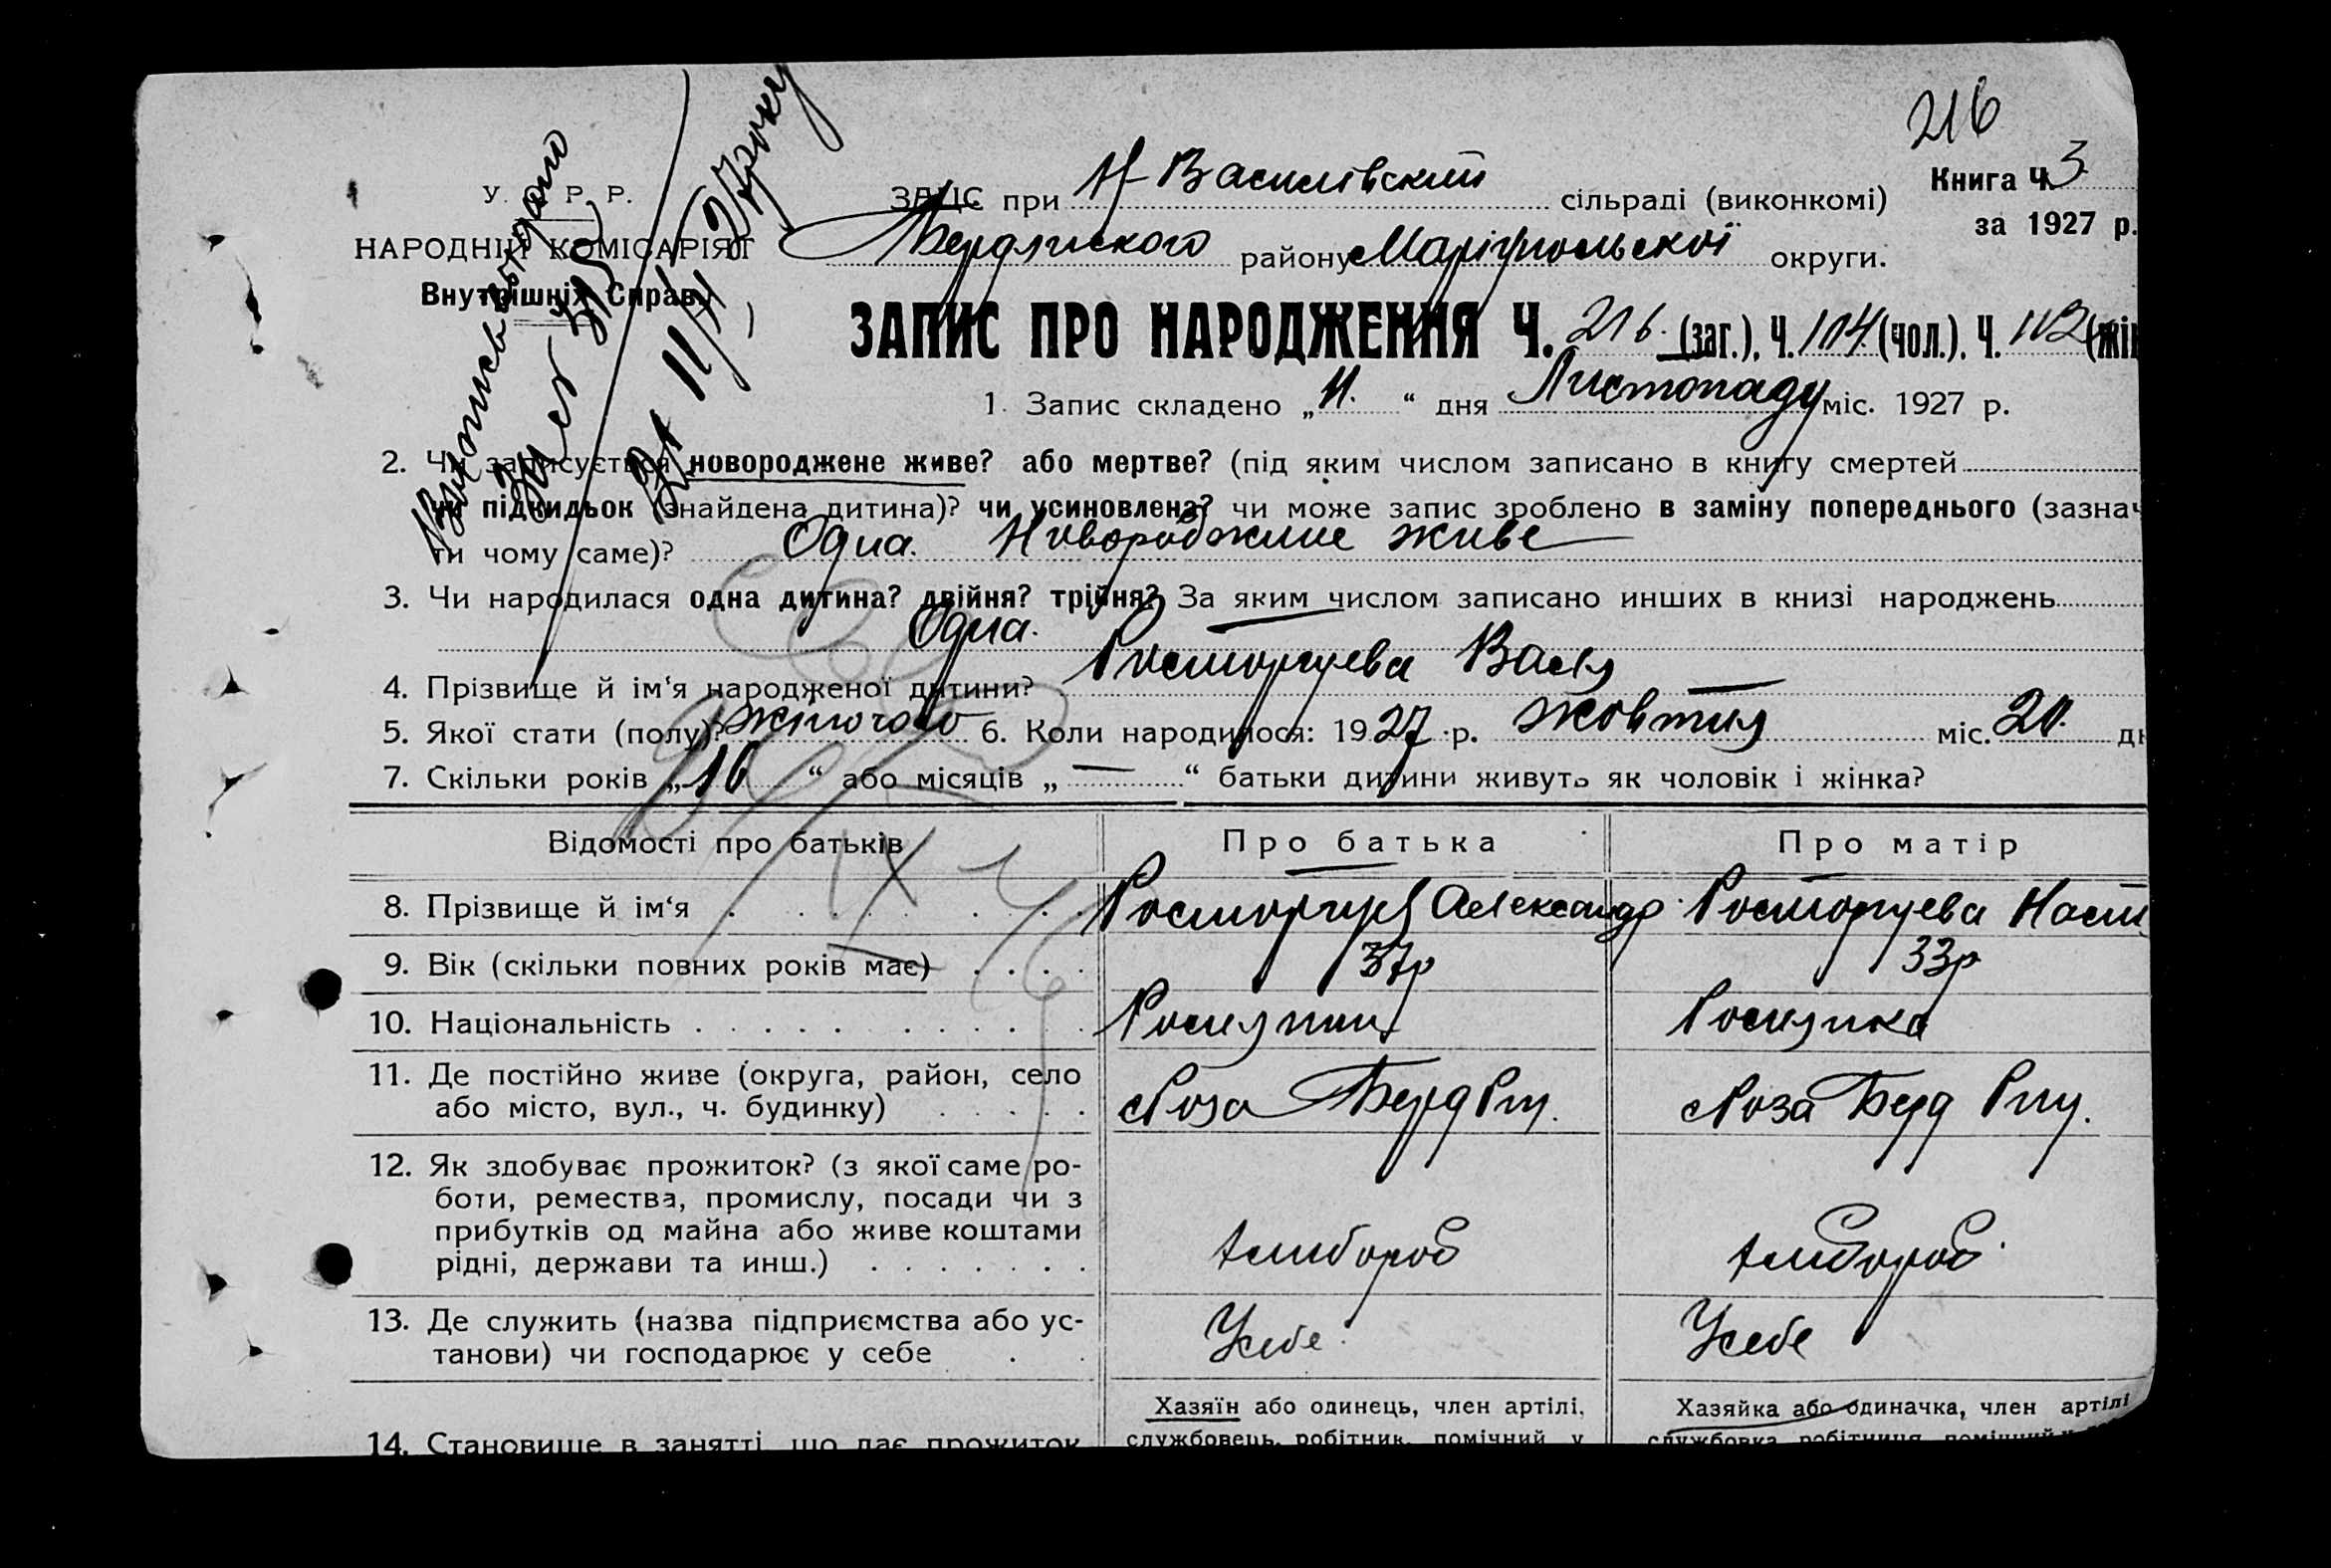 216
Книга Ч. 3
за 1927 р.
У. С. Р. Р.
НАРОДНІЙ КОМІСАРІЯТ
Внутрішніх Справ
ЗАПИС при Н-Василівский сільраді (виконкомі)
Бердянского району Маріупольскої округи.
ЗАПИС ПРО НАРОДЖЕННЯ Ч. 216. (заг.), Ч. 114 (чол.), Ч. 102 (жін
Виппись видано
За 11/XI 27 року
1. Запис складено „ “ дня Листопаду міс. 1927 р.
2. Чи записується новороджене живе? або мертве? (під яким числом записано в книгу смертей
чи підкидьок (знайдена дитина)? чи усиновлена? чи може запис зроблено в заміну попереднього (зазнач
ти чому саме)? Одна. Новороджине живе
3. Чи народилася одна дитина? двійня? трійня? За яким числом записано инших в книзі народжень
Одна.
4. Прізвище й ім‘я народженої дитини? Росторгуева
5. Якої стати (полу)? жіночого 6. Коли народилося: 1927 р. жовтня міс. 20. дн
7. Скільки років „16“ або місяців „—“ батьки дитини живуть як чоловік і жінка?
Відомості про батьків Про батька Про матір
8. Прізвище й ім‘я Росторгуев Александр Росторгуева Наст
9. Вік (скільки повних років має) 37р 33р
10. Національність Росиянин Росиянка
11. Де постійно живе (округа, район, село
або місто, вул., ч. будинку) Лоза Берд Рну. Лоза Берд Рну.
12. Як здобуває прожиток? (з якої саме ро-
боти, ремества, промислу, посади чи з
прибутків од майна або живе коштами
рідні, держави та инш.) хлибороб хлибороб
13. Де служить (назва підприємства або ус-
танови) чи господарює у себе Усебе Усебе
14. Становище в занятті, що дає прожиток
Хазяїн або одинець, член артілі,
службовець, робітник, помічний у
Хазяйка або одиначка, член артілі
службовка, робітниця, помічний у